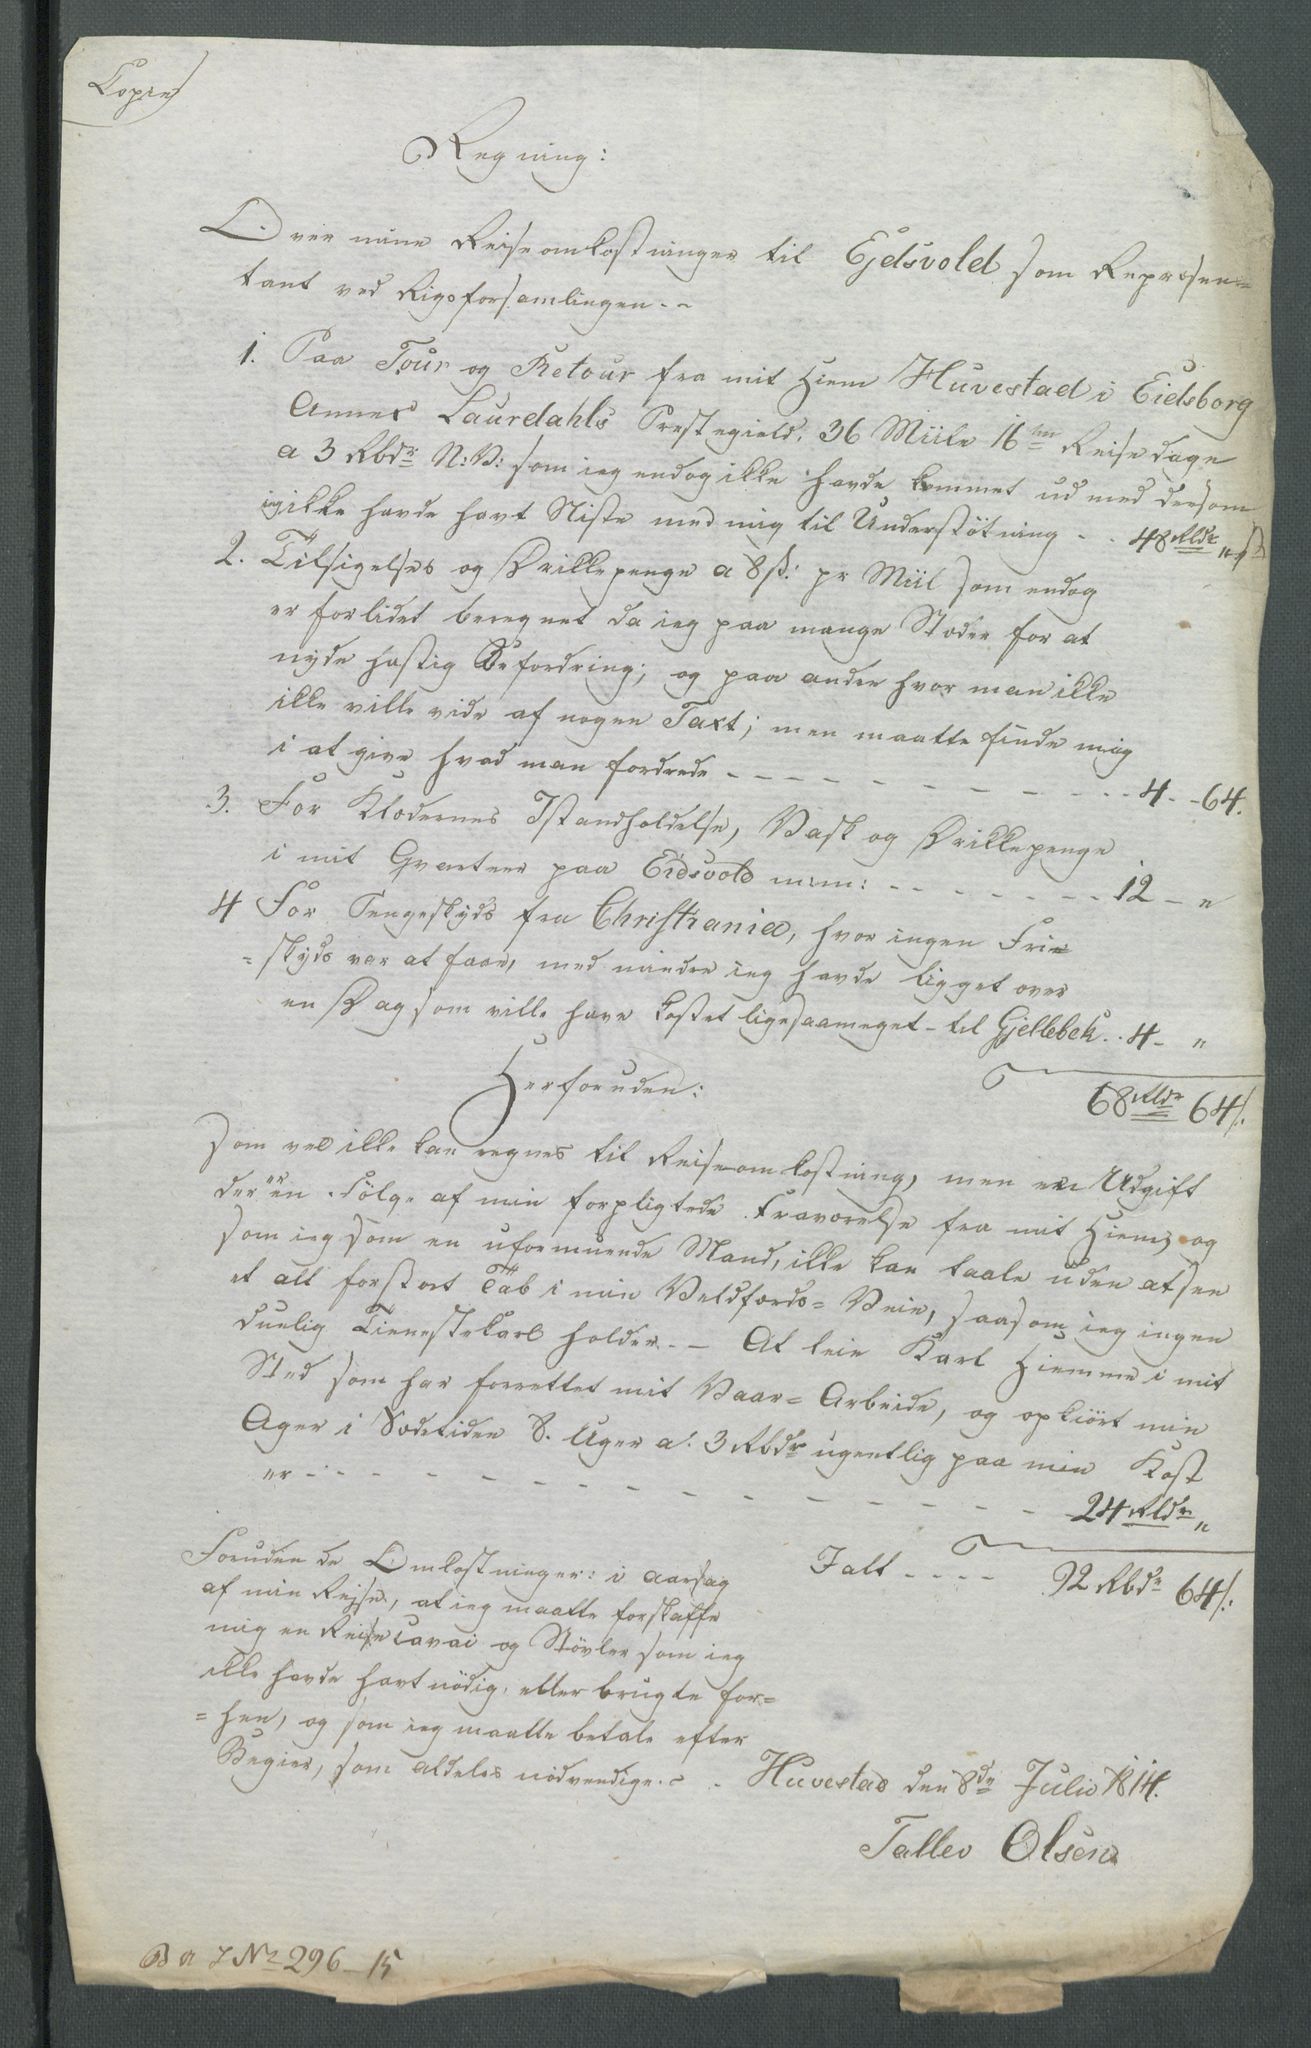 Copie
Regning:
Over mine Reiseomkostninger til Ejdsvold som Repræsen=
tant ved Rigsforsamlingen. ~
1. Paa Tour og Retour fra mit Hiem Huvestad i Eidsborg
Annex Laurdahls Præstegield, 36 Miile 16 Reise dage
a 3 Rbdr N:V: som ieg endog ikke havde kommet ud med dersom
ieg ikke havde havt Niste med mig til Understötning - - 48 Rbdr " s
2. Tilsigelses og Drikkepenge a 8 s: pr Miil som endog
er for lidet beregnet da ieg paa mange Stæder for at
nyde hastig Befordring; og paa andre hvor man ikke
ikke ville vide af nogen Taxt; men maatte finde mig
i at give hvad man fordrede - - - - - - - - - - - 4. - 64.
3. For Klædernes Istandholdelse, Vask og Drikkepenge
i mit Qvarteer paa Eidsvold m:m: - - - - - - - - 12 - "
4 For Pengeskyds fra Christiania, hvor ingen Frie
=skyds var at faae, med mindre ieg havde ligget over
en Dag som ville have kostet ligesaameget - til Gjellebek . . 4 - "
68 Rbdr 64 s.
Herforuden:
Som vel ikke kan regnes til Reiseomkostning, men en Udgift
der er en Fölge af min forpligtede Fraværelse fra mit Hiem, og
som ieg som en uformuende Mand, ikke kan taale uden at see
et alt for stort Tab i min Veldfærds= Veie, saasom ieg ingen
duelig Tienestekarl holder. - At leie Karl Hiemme i mit
Sted som har forrettet mit Vaar= Arbeide, og opkiört min
Ager i Sædetiden 8. Uger a: 3 Rbdr ugentlig paa min Kost
er - - - - - - - - - - - - - - - 24 Rbdr "
Ialt - - - - 92 Rbdr 64 s:
Foruden de Omkostninger: i aarsag
af min Rejse, at ieg maatte forskaffe
mig en Reise Cavai og Stövler som ieg
ikke havde havt nödig, eller brugte for=
=hen, og som ieg maatte betale efter
Begier, som aldeles nödvendige. ~
Huvestad den 8de Julii 1814.
Tallev Olsen
No 296 - 15